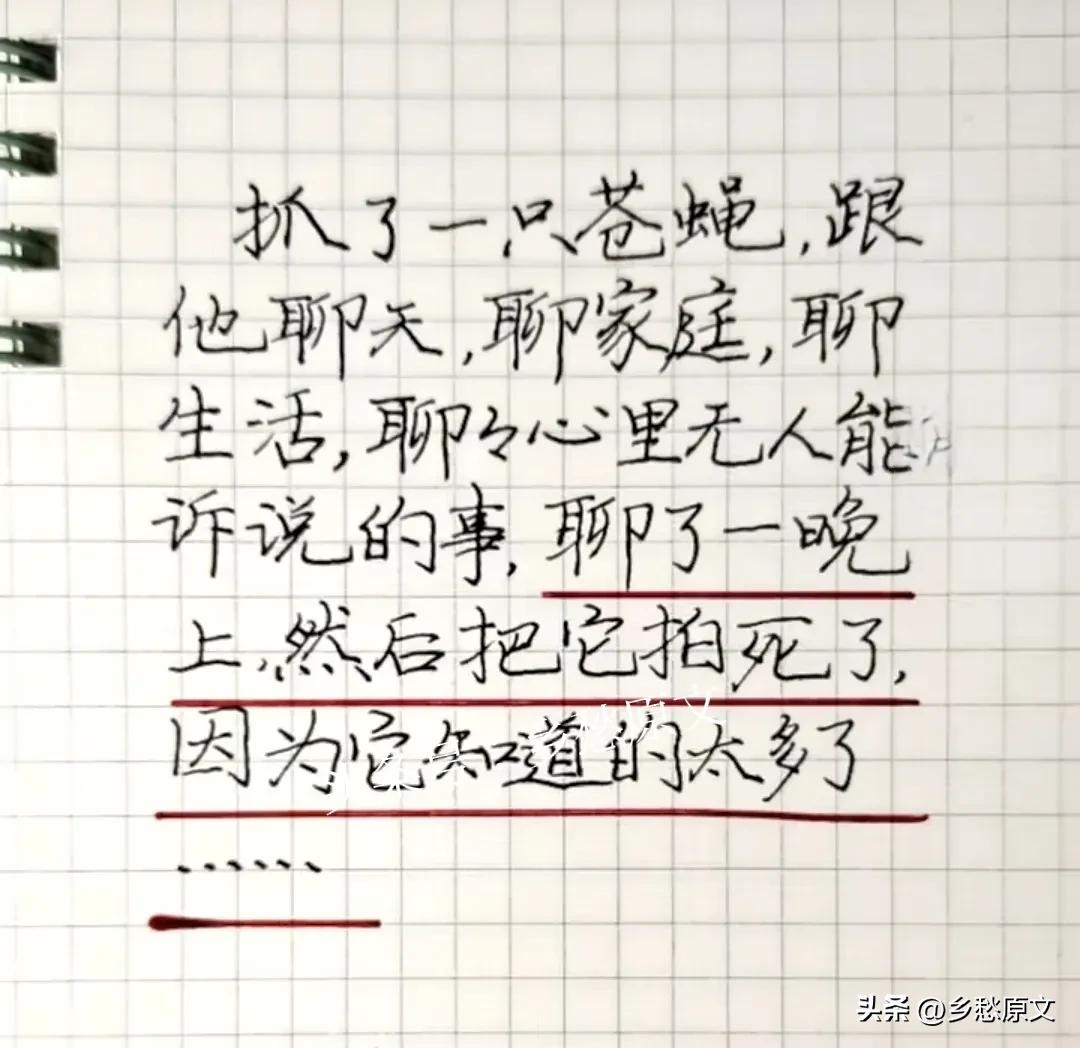 抓了一只苍蝇,跟
他聊天,聊家庭,聊
生活,聊々心里无人能
诉说的事,聊了一晚
上,然后把它拍死了,
因为它知道的太多了
……
头条 @乡愁原文